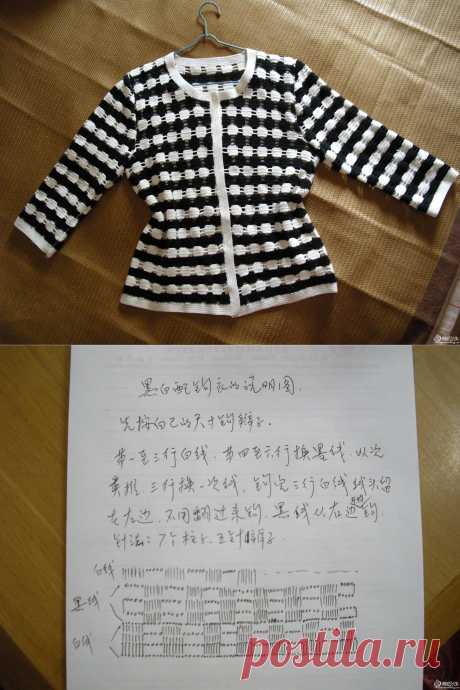 黑白配钩衣的说明图.
先按自己的尺寸钩辫子.
第一至三行白线.第四至六行换黑线.以次
类推.三行换一次线.钩完三行白线线头留
在左边.不用翻过来钩.黑线从右边钩.
针法:7个柱子.五针辫子.
白线
黑线
白线
postila.ru